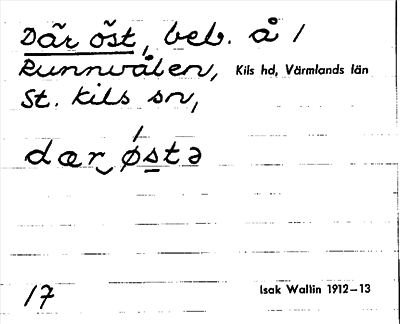 Där öst, beb. å /
Runnvålen, Kils hd, Värmlands län
St. Kils sn,
dær östə
17 Isak Wallin 1912–13